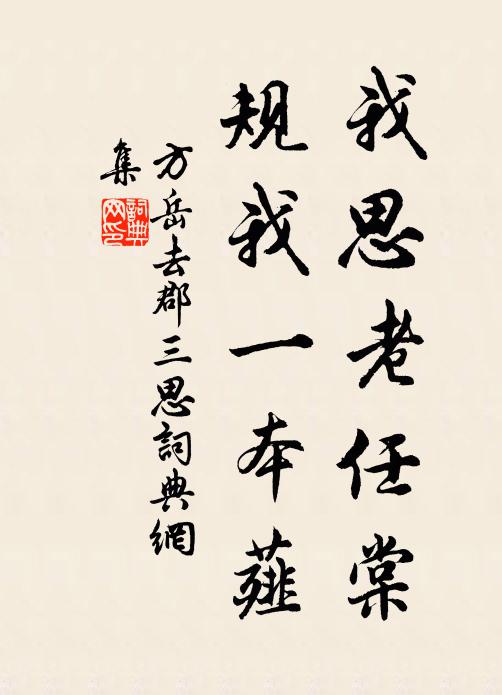 我思老任棠
规我一本薤
方岳去郡三思詞典網
集
詞典网印